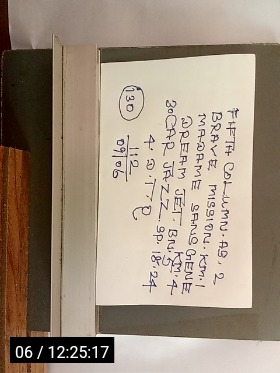 FIFTH COLUMN. AB. 2
BRAVE MISSION. KM. 1
MADAME SANS GENE
DREAM JET. BN. 5 KM. 4
SCAR JAZZ SP. 18-24
4. D. T. P
130
1:2
09/06
06 / 12:25:17